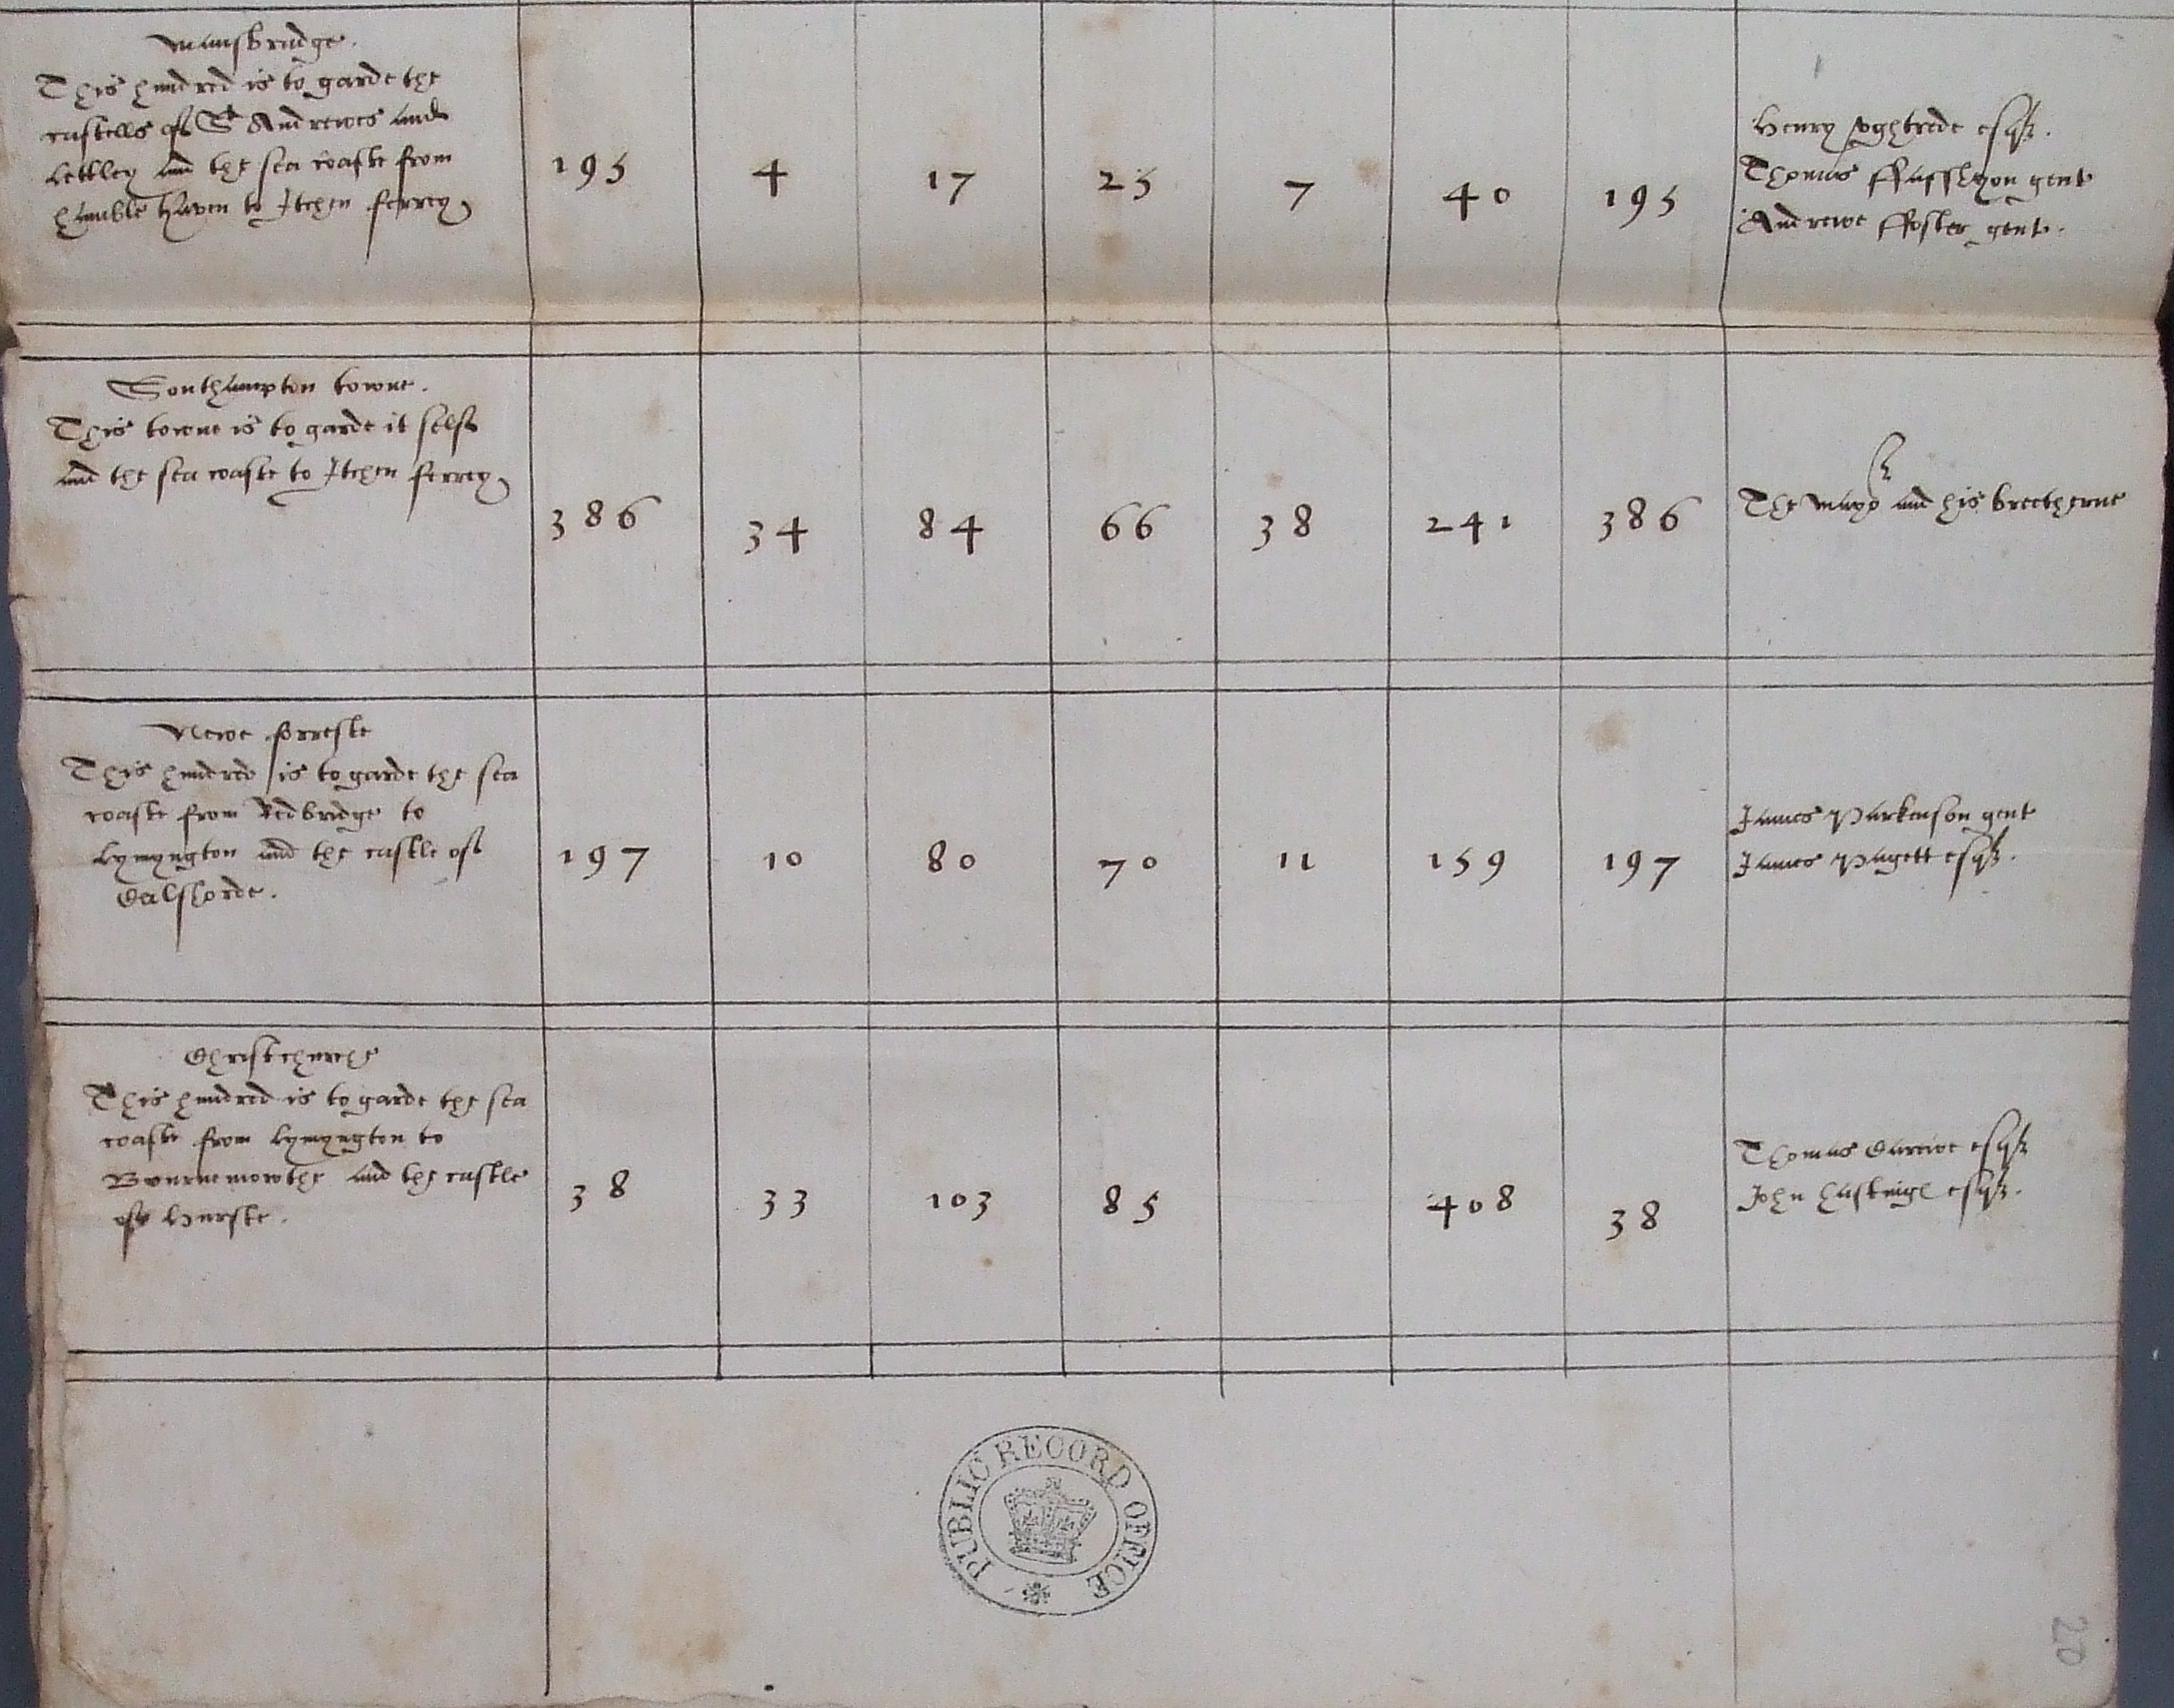 Mansbridge.
This hundred is to garde the
castells of St Andrewes and
Lettley and the sea coaste from
Hamble haven to Itchen ferrey
195 4 17 25 7 40 195
Henry Vghtrede esqr.
Thomas gent
Andrewe ffoster gent.
Southampton towne.
This towne is to garde it self
and the sea coaste to Itchen ferrey
386 34 84 66 38 241 386
The mayor and his breetherne
Newe forreste
This hundred is to garde the sea
coaste from Redbridge to
Lymyngton and the castle of
Calshorde.
197 10 80 70 11 159 197
James Parkenson gent
James Pagett esqr.
Christchurche
This hundred is to garde the sea
coaste from Lymyngton to
Bournemowthe and the castle
of Hurste.
38 33 103 85 408 38
Thomas Carewe esqr
John esqr.
PUBLIC RECORD OFFICE
20